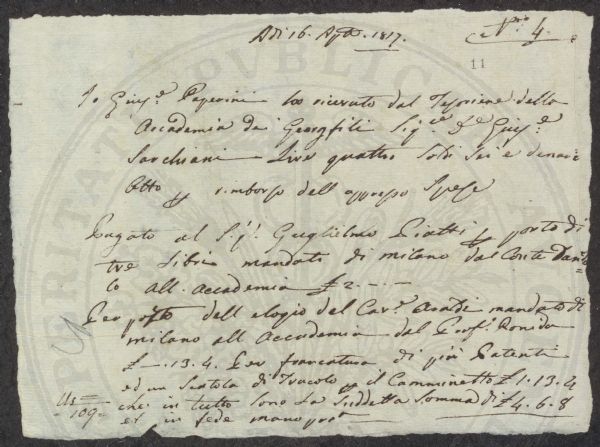 Adi 16. Agto. 1817.
Nro. 4.
11
Io Giuse. Paperini ho ricevuto dal Tesoriere della
Accademia dei Georgofili Sigre. Dre. Giuse.
Sarchiani Lire quattro Soldi Sei e denari
Otto p rimborso dell appresso Spese
Pagato al Sigr. Guglielmo Piatti p porto di
tre Libri mandati di milano dal Conte Dando=
lo all. Accademia £ 2.-.-
Per porto dell elogio del Cavr. mandato di
milano all Accademia dal Profr.
£-.13.4. Per francatura di più Patenti
ed un Scatola di p il Camminetto £ 1.13.4
che in tutto sono La Suddetta Somma di £ 4.6.8
et in fede mano pra
109
PUBLICA